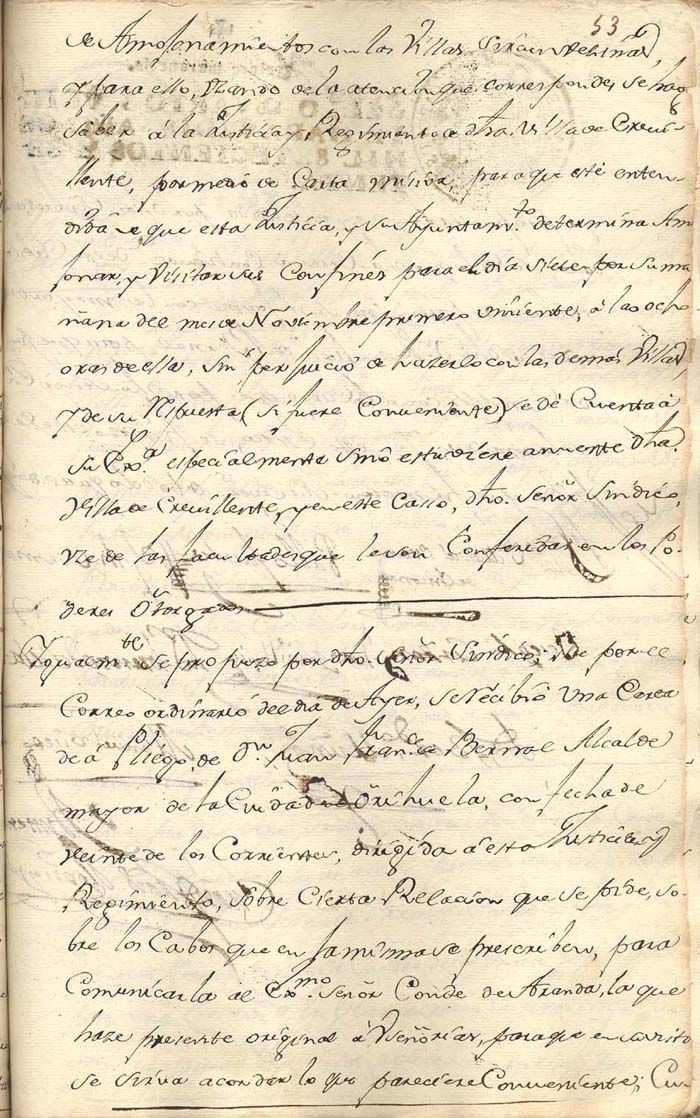 53
de Amojonamientos con las Villas circunvecinas,
y para ello, usando de la atencion que corresponde, se haga
saber à la Justicia y Regimiento de dha. Villa de Crevi-
llente, por medio de Carta misiva, para que esté enten-
dida de que esta Justicia, y su Ayuntam.to determina Amo-
jonar, y Visitar sus Confines para el dia siete por su ma-
ñana del mes de Noviembre primero viniente, à las ocho
oras de ella, sin perjuicio de hazerlo con las demás Villas
y de su Respuesta (si fuere Conveniente) se dé Cuenta à
su Ex.a especialmente sino estuviere anuente dha.
Villa de Crevillente, y en este Casso, dho. Señor Sindico,
Use de las facultades que le son Conferidas en los Po-
deres Otorgados
Igualm.te se propuzo por dho. Señor Sindico, que por el
Correo ordinario del dia de Ayer, se recibió Una Carta
de á Pliego, de D.n Juan Fran.co Bernal Alcalde
mayor de la Ciudad de Orihuela, con fecha de
veinte de los Corrientes, dirigida à esta Justicia y
Regimiento, sobre Cierta Relacion que se pide, so-
bre los Cabos que en la misma se prescriben, para
Comunicarla al Ex.mo Señor Conde de Aranda, la que
haze presente original à Vseñorias, para que en su visto
se sirva acordar lo que pareciere Conveniente; Cu-